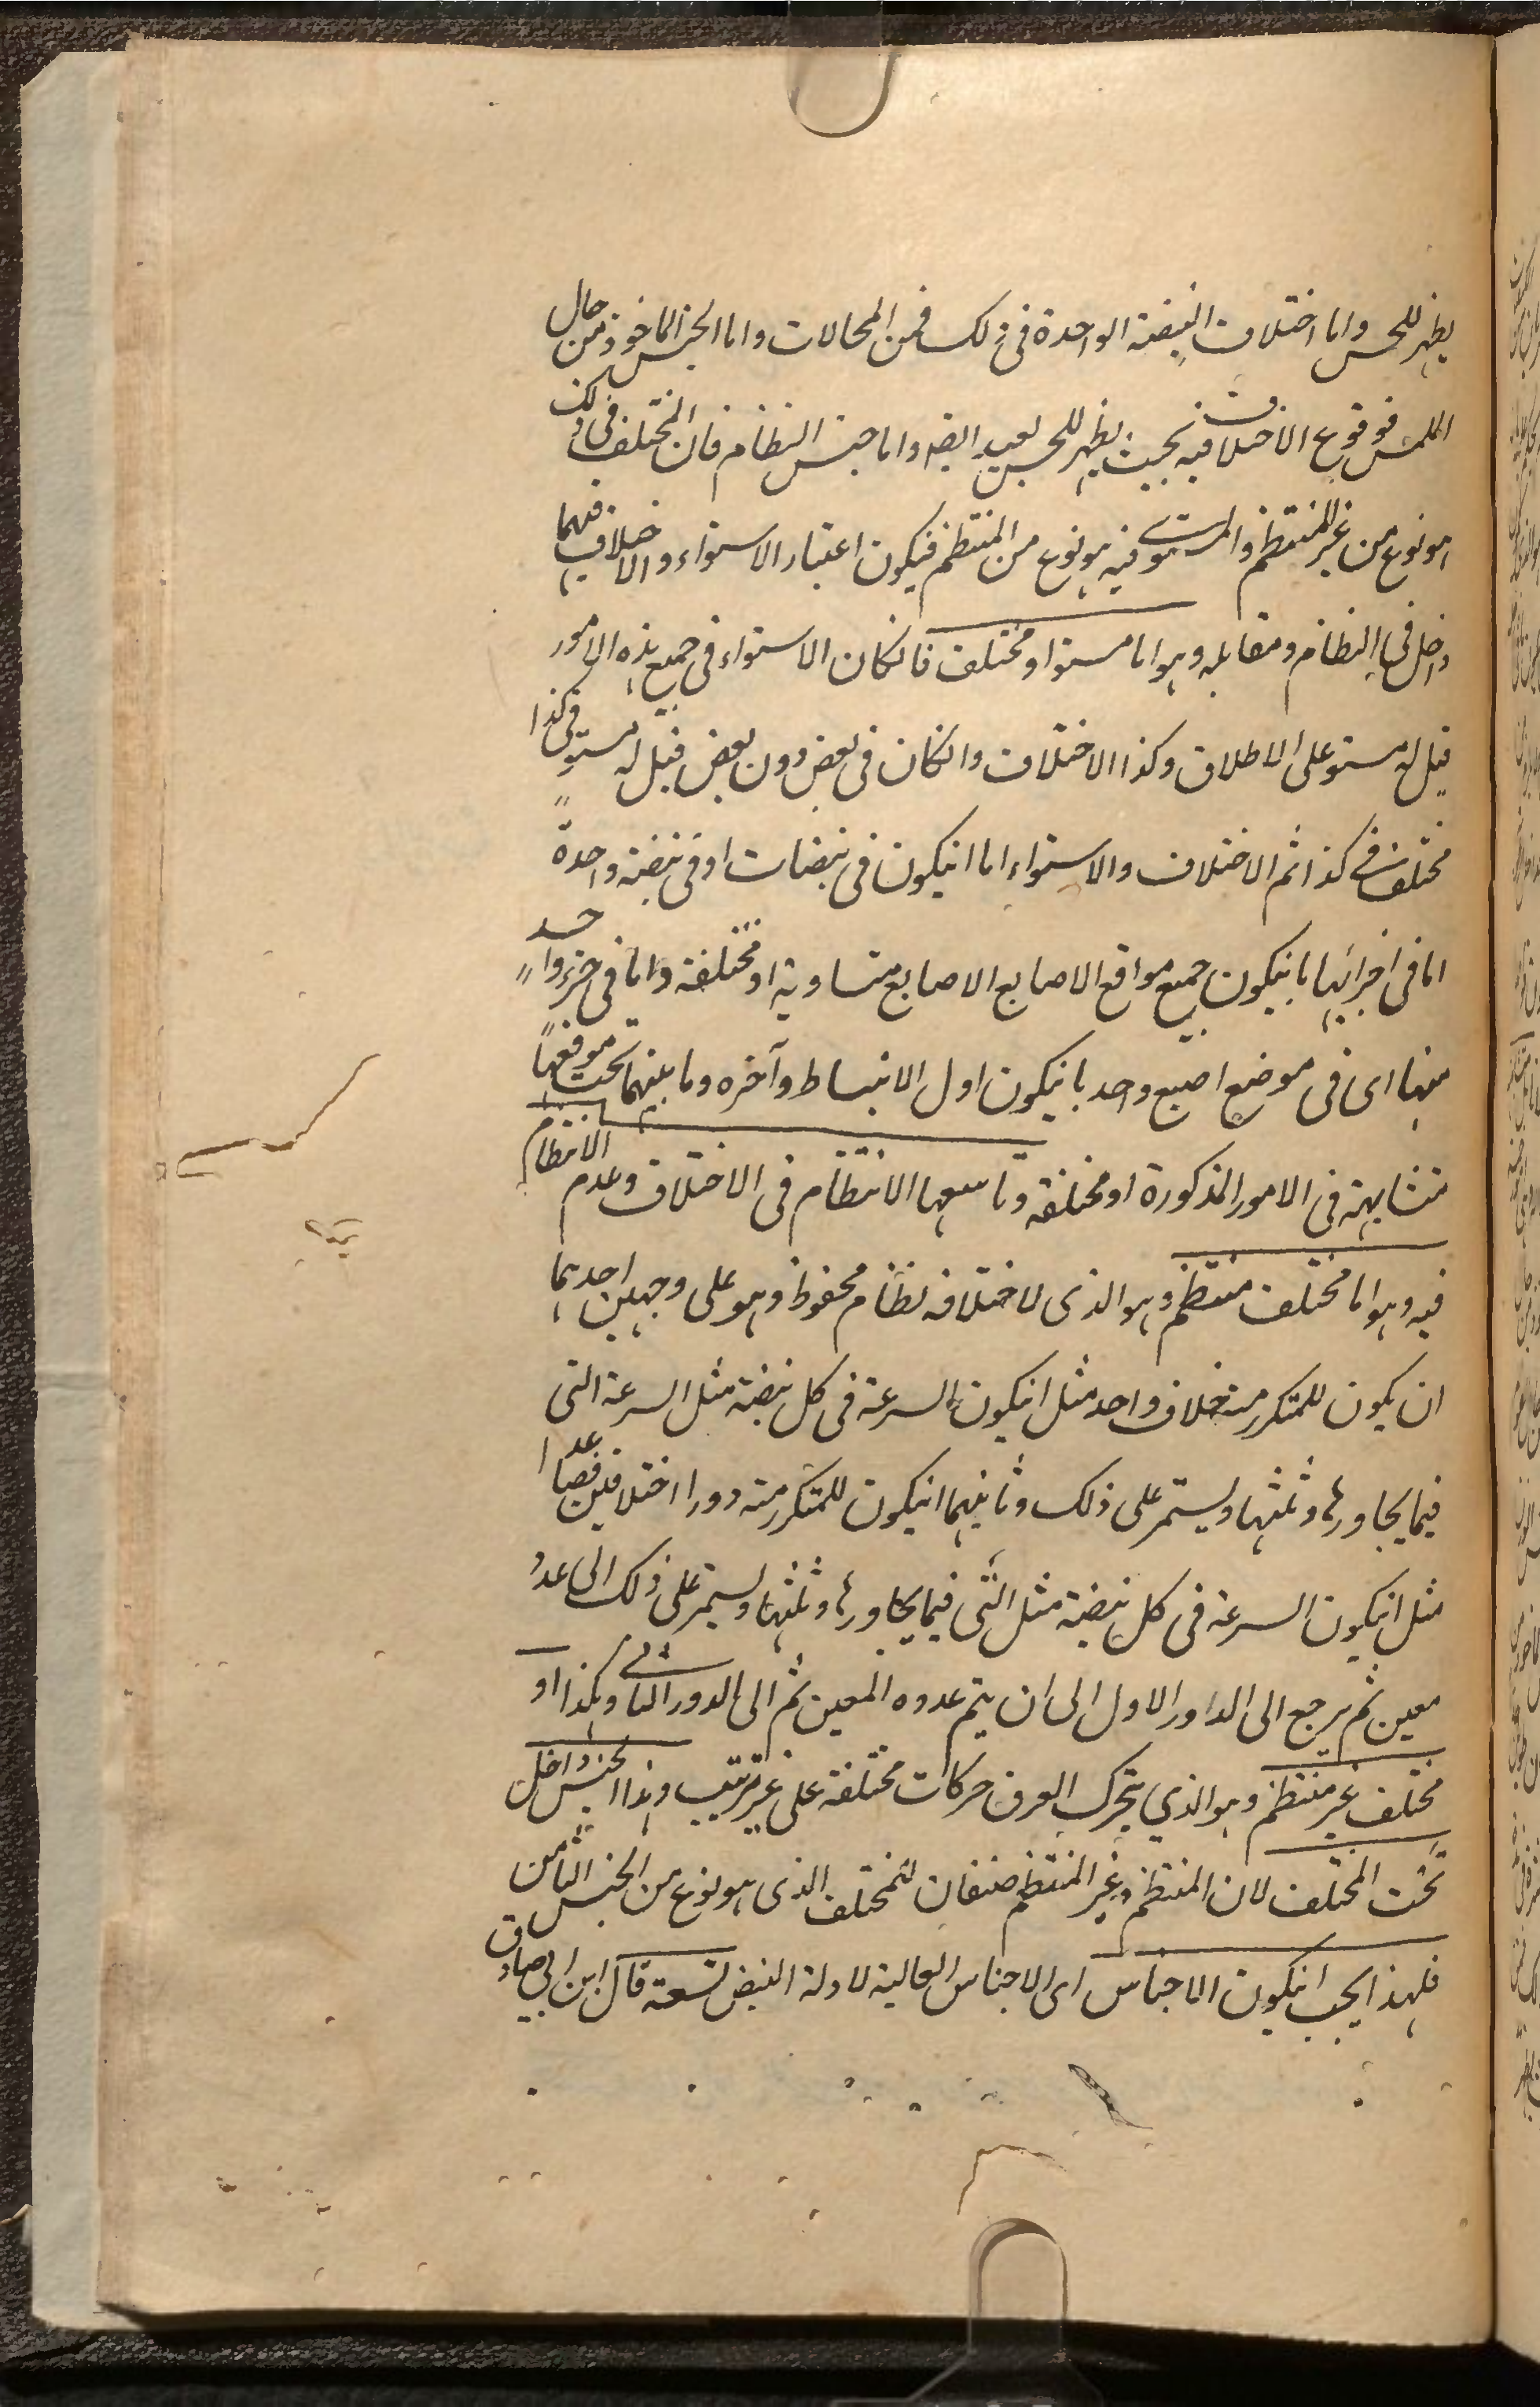 يظهر للحس واما اختلاف النبضة الواحدة فى ذلك فمن المحالات واما الجنس الماخوذ من حال
الملمس فوقوع الاختلاف فيه بحيث يظهر للحس بعيد ايضا واما جنس النظام فان المختلف فى ذلك
هو نوع من غير المنتظم والمستوى فيه هو نوع من المنتظم فيكون اعتبار الاستواء والاختلاف فيهما
داخل فى النظام ومقابله وهو اما مستو او مختلف فانكان الاستواء فى جميع هذه الامور
قيل له مستو على الاطلاق وكذا الاختلاف وانكان فى بعض دون بعض قيل له مستو فى كذا
مختلف فى كذا ثم الاختلاف والاستواء اما انيكون فى نبضات او فى نبضة واحدة
اما فى اجزائها بانيكون جميع مواقع الاصابع الاصابع متساوية او مختلفة واما فى جزء واحد
منها اى فى موضع اصبع واحد بانيكون اول الانبساط وآخره وما بينهما تحت موقعها
متشابهة فى الامور المذكورة او مختلفة وتاسعها الانتظام فى الاختلاف وعدم الانتظام
فيه وهو اما مختلف منتظم وهو الذى لاختلافه نظام محفوظ وهو على وجهين احدهما
ان يكون للمتكرر منه خلاف واحد مثل انيكون السرعة فى كل نبضة مثل السرعة التى
فيما يجاورها وثلثها ويستمر على ذلك وثانيهما انيكون للمتكرر منه دورا اختلافين فصاعدا
مثل انيكون السرعة فى كل نبضة مثل التى فيما يجاورها وثلثها ويستمر على ذلك الى عدد
معين ثم يرجع الى الداور الاول الى ان يتم عدده المعين ثم الى الدور الثانى وهكذا او
مختلف غير منتظم وهو الذي يتحرك العرق حركات مختلفة على غير ترتيب وهذا الجنس داخل
تحت المختلف لان المنتظم وغير المنتظم صنفان للمختلف الذى هو نوع من الجنس الثامن
فلهذا يجب انيكون الاجناس اى الاجناس العالية لادلة النبض تسعة قال ابن ابي صادق